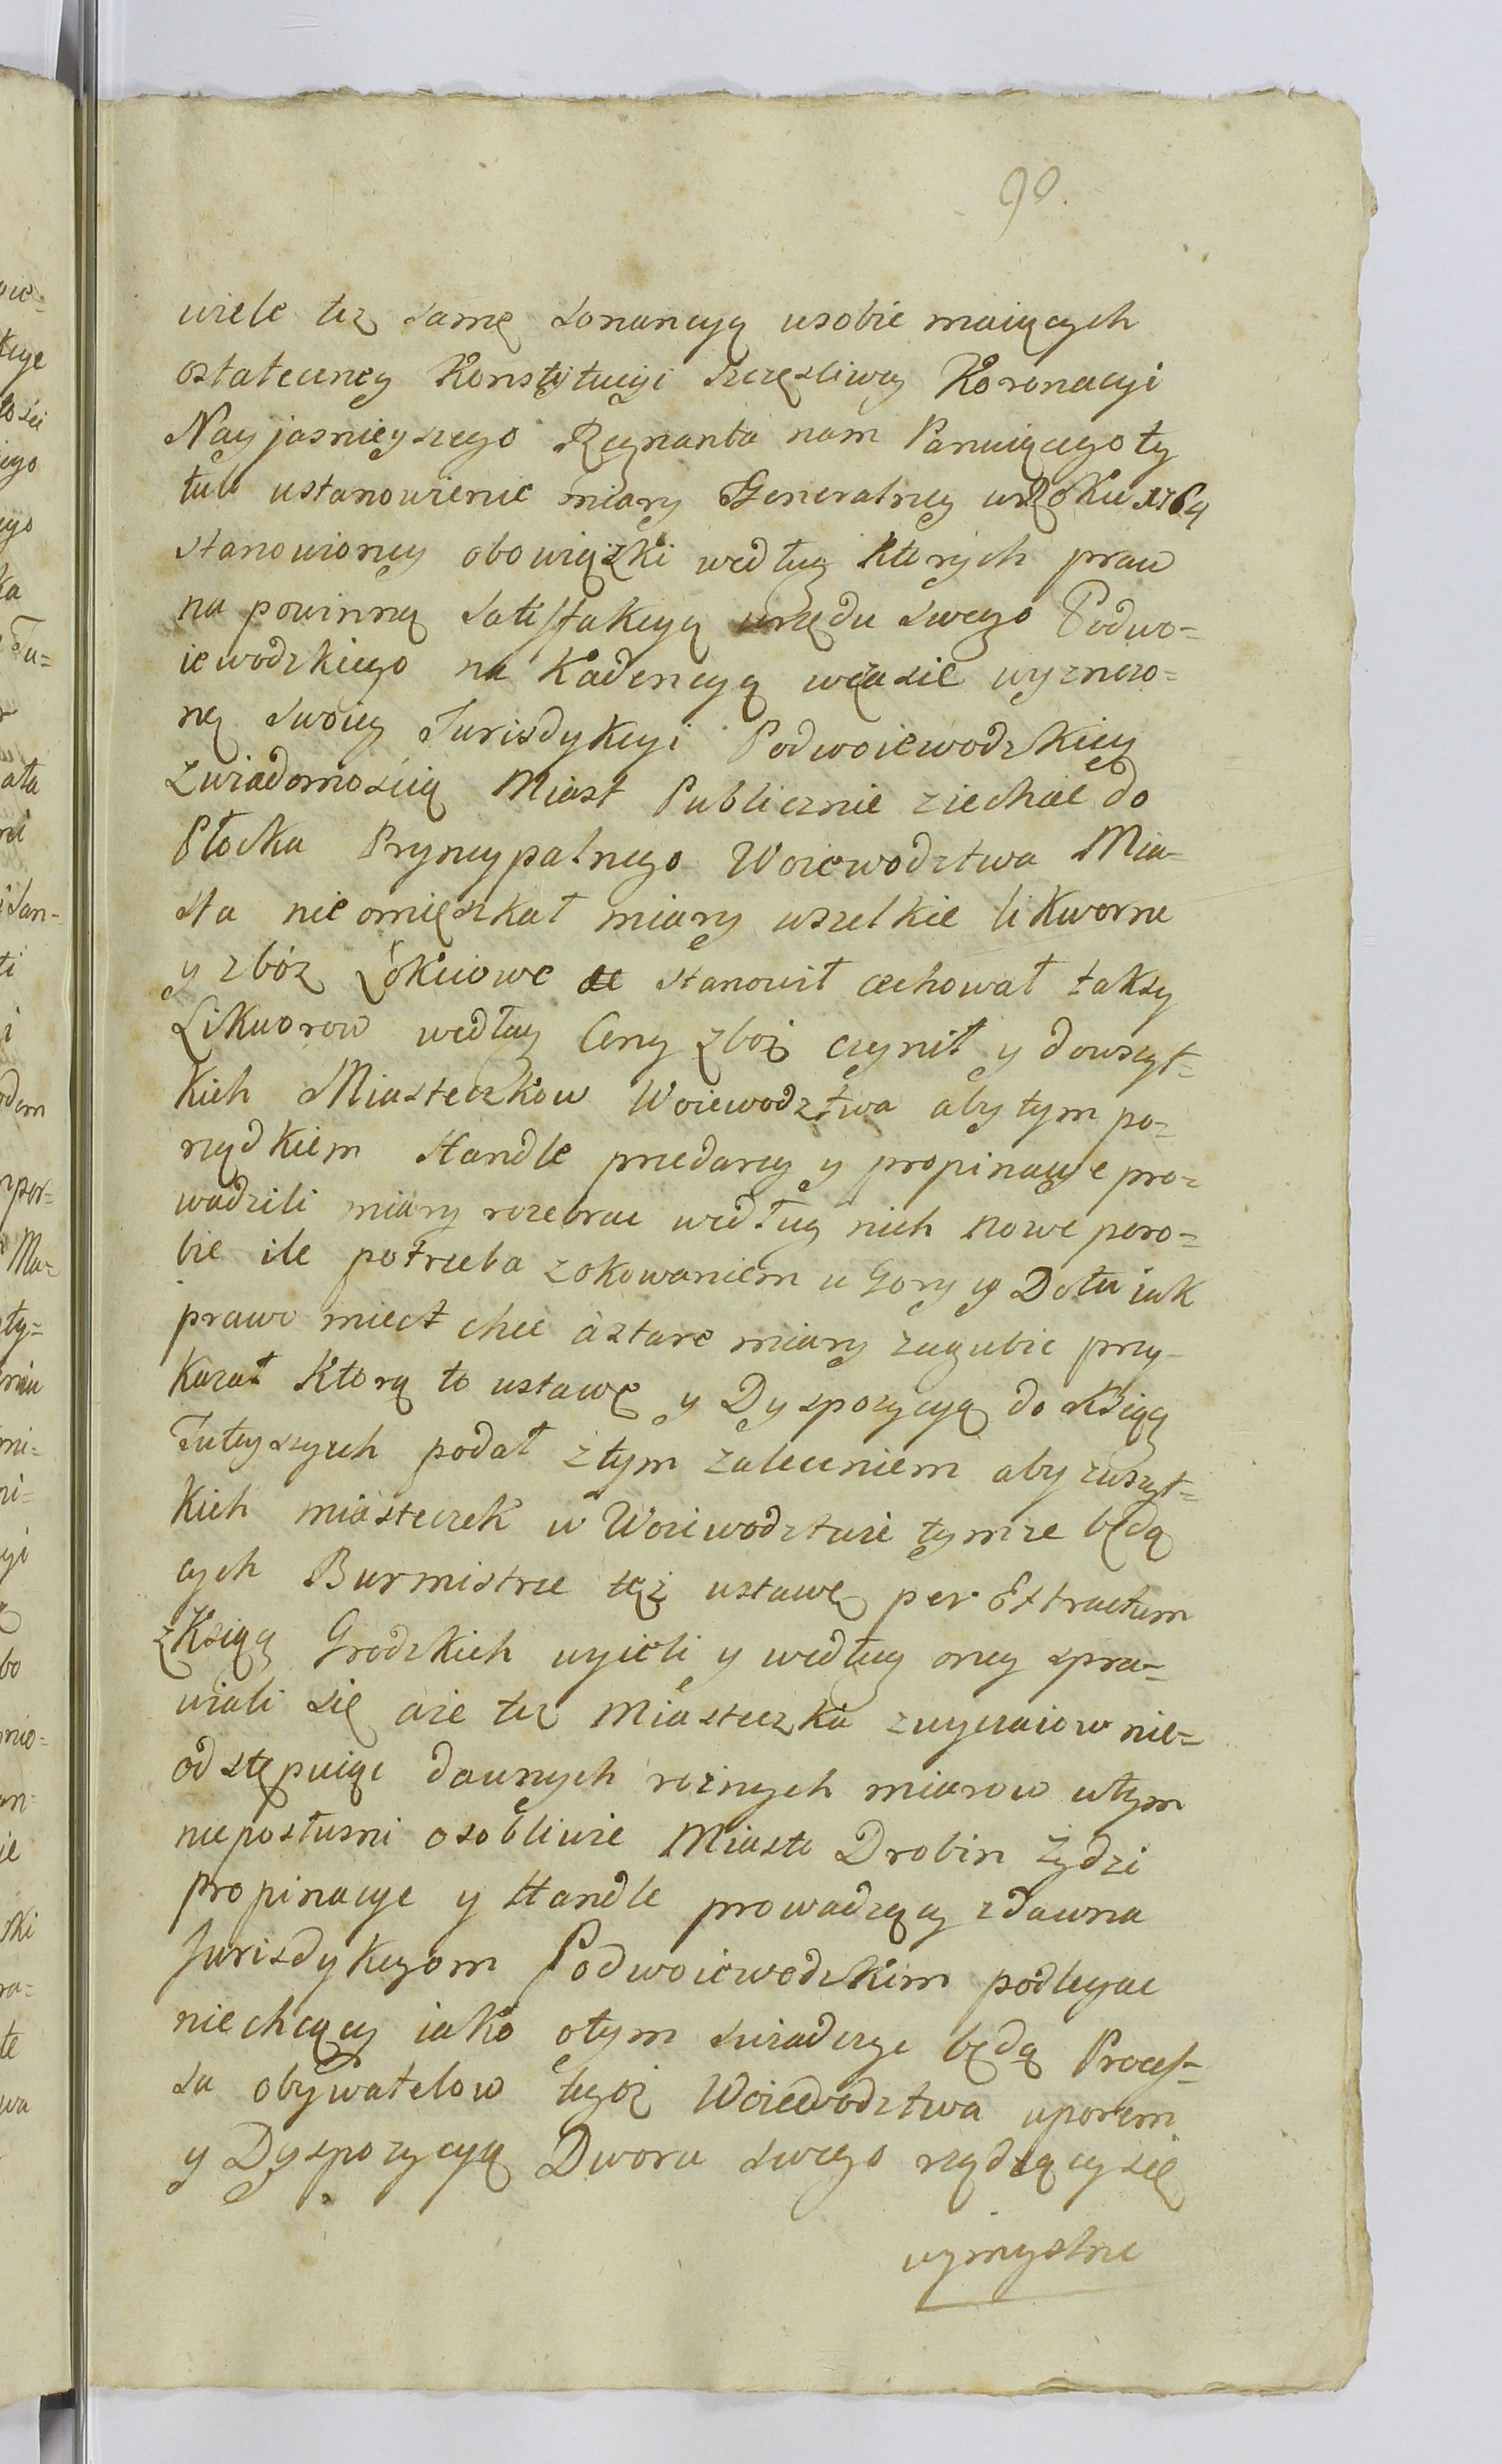 90.
wiele też samę sonancyą wsobie maiących
ostateczney Konstytucyi szczęsliwey Koronacyi
Nayjasnieyszego Regnanta nam Panuiącego ty
tuło ustanowienie miary Generalney wRoku 1764
stanowioney obowiązki według ktorych praw
na powinną satisfakcyą urzędu swego Podwo=
iewodzkiego na Kadencyą wczasie wyznczo=
ną swoiey Jurisdykcyi Podwoiewodzkiey
zwiadomoscią Miast Publicznie ziechac do
Płocka Pryncypalnego Woiewodztwa Mia-
sta nieomięszkał miary wszelkie likworne
y zboz Łokciowe stanowił cechował taksy
Likworow według Ceny zboż czynił y dowszyt=
kich Miasteczkow Woiewodztwa aby tym po=
rządkiem Handle przedarzy y propinacye pro=
wadzili miary rozebrac według nich nowe poro=
bic ile potrzeba zokowaniem u Gory y Dołu iak
prawo miect chce astare miary zagubic przy-
kazał Ktorą to ustawę y Dyspozycyą do Xsiąg
Tuteyszych podał ztym zaleceniem aby zwszyt=
kich miasteczek w Woiewodztwie tymze będą
cych Burmistrze tęż ustawę per Extractum
zKsiąg Grodzkich wyieli y według oney spra=
wiali się aże też Miasteczka zwyczaiow nie=
odstępuiąc dawnych rożnych miarow wtym
nieposłuszni osobliwie Miasto Drobin Żydzi
propinacye y Handle prowadzący zdawna
Jurisdykcyom Podwoiewodzkim podlegac
niechcący iako otym swiadczyc będą Proces=
sa obywatelow tegoż Woiewodztwa uporem
y Dyspozycyą Dworu swego rządzący się
wymyslne